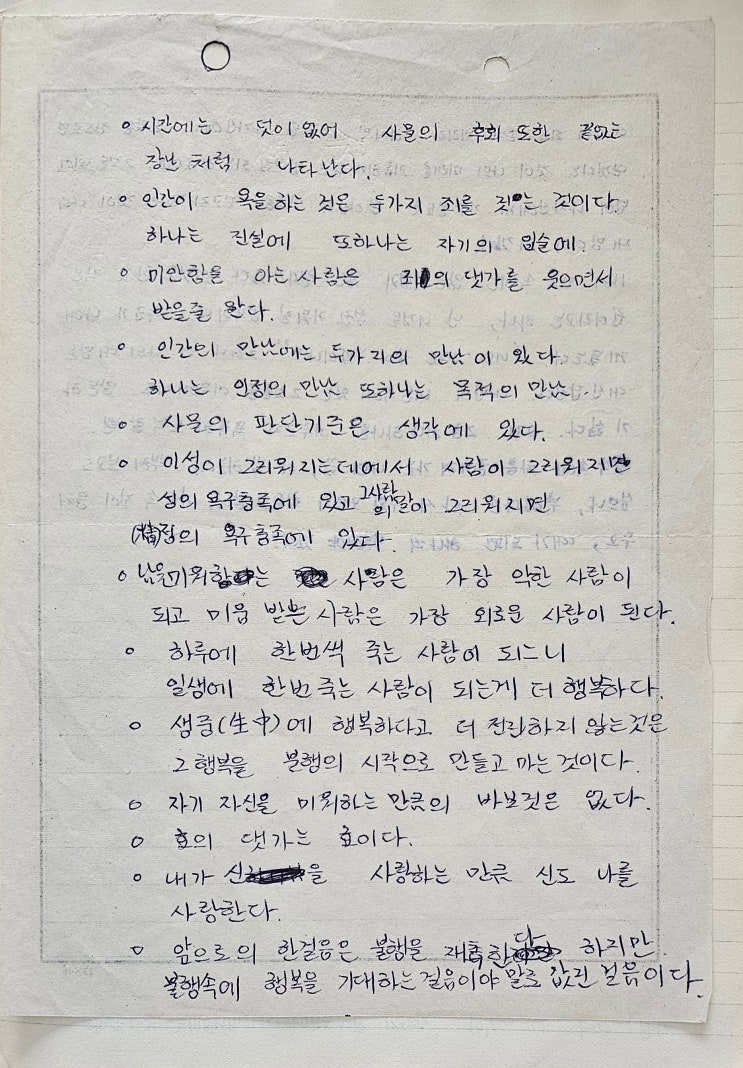 ◦ 시간에는 덧이 없어 사물의 후회 또한 끝없는
장난 처럭 나타난다.
◦ 인간이 욕을하는 것은 두가지 죄를 짓는 것이다
하나는 진실에 또하나는 자기의 입술에.
◦ 미안함을 아는사람은 죄의 댓가를 웃으면서
받을줄 안다.
◦ 인간의 만남에는 두가지의 만남이 있다
하나는 인정의 만남 또하나는 목적의 만남.
◦ 사물의 판단기준은 생각에 있다.
◦ 이성이 그리워지는데에서 사람이 그리워지면
성의 욕구충족에 있고 그사람의 말이 그리워지면
(精)정의 욕구충족에 있다.
◦ 남을미워하는 사람은 가장 악한 사람이
되고 미움 받는 사람은 가장 외로운 사람이 된다.
◦ 하루에 한번씩 죽는 사람이 되느니
일생에 한번죽는 사람이 되는게 더 행복하다.
◦ 생중(生中)에 행복하다고 더 전진하지 않는것은
그행복을 불행의 시작으로 만들고 마는것이다.
◦ 자기 자신을 미워하는 만큼의 바보짓은 없다.
◦ 효의 댓가는 효이다.
◦ 내가 신을 사랑하는 만큼 신도 나를
사랑한다.
◦ 앞으로의 한걸음은 불행을 재촉한다 하지만
불행속에 행복을 기대하는걸음이야 말로 값진 걸음이다.